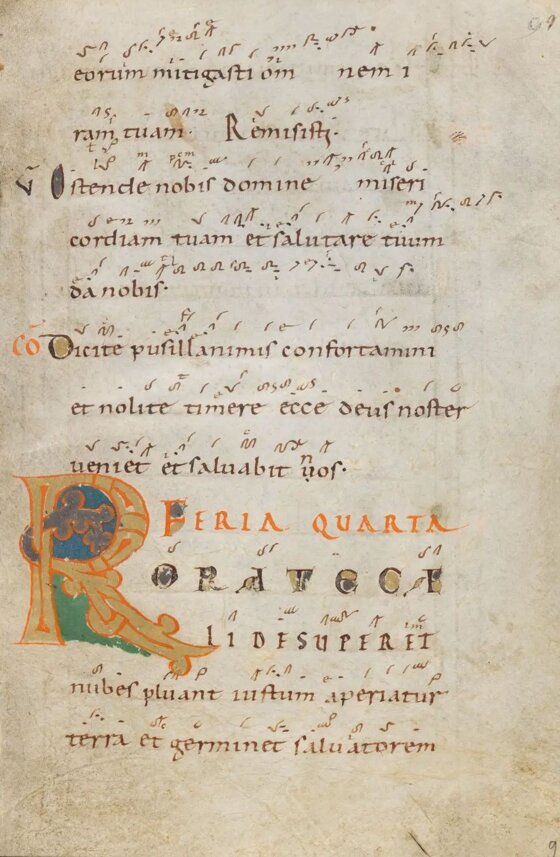 eorum mitigasti om nem i
ram tuam. Remisisti.
V Ostende nobis domine miseri
cordiam tuam et salutare tuum
da nobis.
CO Dicite pusillanimis confortamini
et nolite timere ecce deus noster
veniet et salvabit vos.
FERIA QUARTA
RORATE CE
LI DESUPER ET
nubes pluant iustum aperiatur
terra et germinet salvatorem